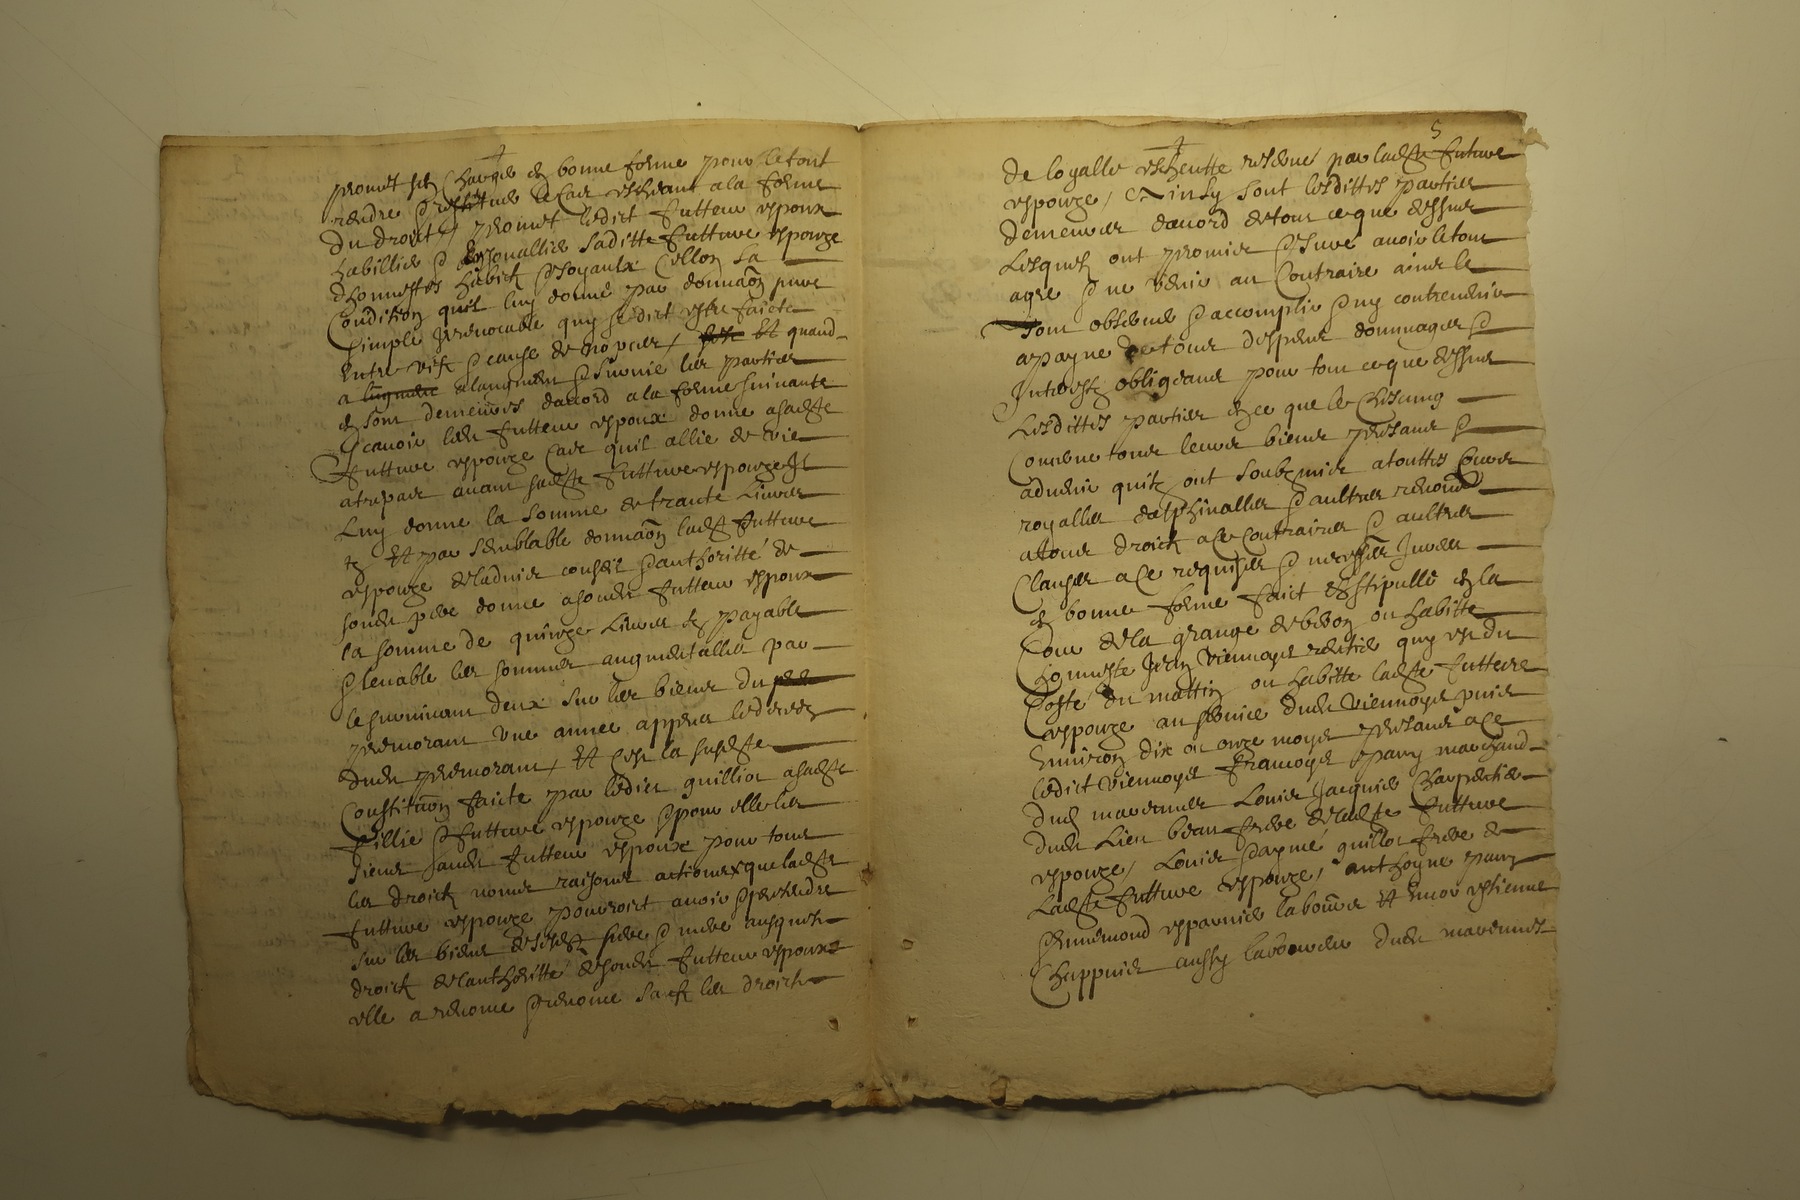 promet sen charger en bonne forme pour le tout
rendre & restitue le cas escheant a la forme
du droict, promet ledict futteur espoux
habillier & esjouallier saditte futture espouze
dhonnestes habitz & joyaulx sellon sa
condition quil luy donne par donnaon pure
simple irrevocable quy se dict estre faicte
entre vifz & cause de nopces, et quand
a laugment & survie les parties
en sont demeures daccord a la forme suivante
scavoir led futteur espoux donne a sadte
futture espouze cas quil allie de vie
a trepas avant sadte futture espouze Il
luy donne la somme de trante livres
tz Et par semblable donnaon ladte futture
espouze de ladvis conseil & authoritté de
sondt pere donne a sondt futteur espoux
la somme de quinze livres tz payable
& levable les sommes augmentalles par
le survivant deux sur les biens du
premorant une annee appres le deces
dudt premorant, Et cest la susdte
constituon faicte par ledict guilliot a sadte
fillie & futture espouze & pour elle les
siens sondt futteur espoux pour tous
les droictz noms raisons actions que ladte
futture espouze pourroict avoir & pretendre
sur les biens de sesdtz pere & mere ausquelz
droictz de lauthoritté de sondt futteur espoux
elle a renonce & renonce sauf les droictz
5
de loyalle escheutte reserve par ladte futture
espouze, Ainsy sont lesdittes parties
demeures daccord de tout ce que dessus
Lesquelz ont promis & jure avoir le tout
agre & ne venir au contraire ains le
tout observer & accomplir & ny contrevenir
a payne de tous despens dommages &
Interestz obligeans pour tout ce que dessus
Lesdittes parties en ce que le chescung
concerne tous leurs biens presans &
advenir quilz ont soubzmis a touttes cours
royalles dalphinalles & aultres renonce
a tous droictz a ce contraires & aultres
clauses a ce requises & necessres Jures
en bonne forme faict & stipullé en la
cour de la grange de bebon ou habitte
honneste Jean Viennoys rentier quy est du
costé du mattin ou habitte ladte futture
espouze au service dudt Viennoys puis
environ dix ou onze moys presans a ce
ledict Viennoys francoys pavy marchand
dudt marennes Louis Jacquier charpentier
dudt lieu beau frere de ladte futture
espouze, Louis & aymé guillot freres de
ladte futture espouze, anthoyne pavy
& ennemond esparvier laboures Et encor estienne
Chappuis aussy laboureur dudt marennes